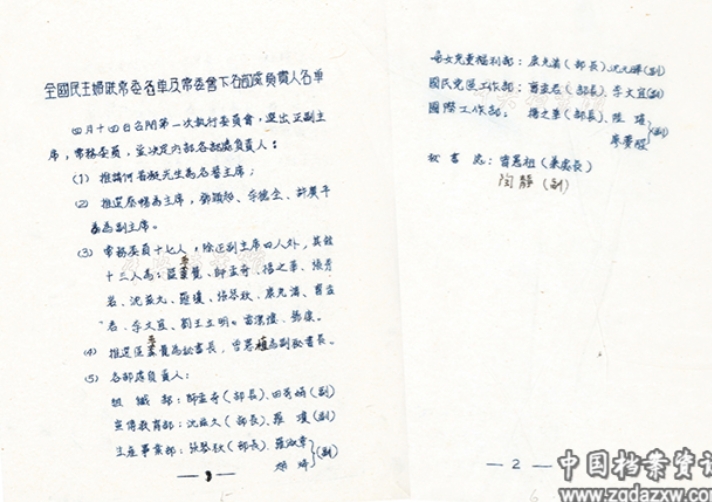 全國民主婦联常委名单及常委會下各部處負責人名单
四月十四日召開第一次執行委員會，選出正副主
席，常務委員，並決定內部各部處負責人：
(1) 推請何香凝先生為名譽主席；
(2) 推選蔡暢為主席，鄧穎超、李德全、許廣平
為副主席。
(3) 常務委員十七人，除正副主席四人外，其餘
十三人為：區夢覺、帥孟奇、楊之華、張芳
君、沈茲九、羅瓊、張琴秋、康克清、曹孟
君、李文宜、劉王立明。
(4) 推選區夢覺為秘書長，曾憲植為副秘書長。
(5) 各部處負責人：
組織部：帥孟奇(部長)、田秀娟(副)
宣傳教育部：沈茲九(部長)、羅瓊(副)
生產事業部：張琴秋(部長)、羅淑章
(副)
— 1 —
婦女兒童福利部：康克清(部長)沈元暉(副)
國民党區工作部：曹孟君(部長)、李文宜(副)
國際工作部：楊之華(部長)、陸璀
(副)
廖夢醒
秘書處：(兼處長)
陶靜(副)
— 2 —
中国档案资讯
www.zgdazxw.com